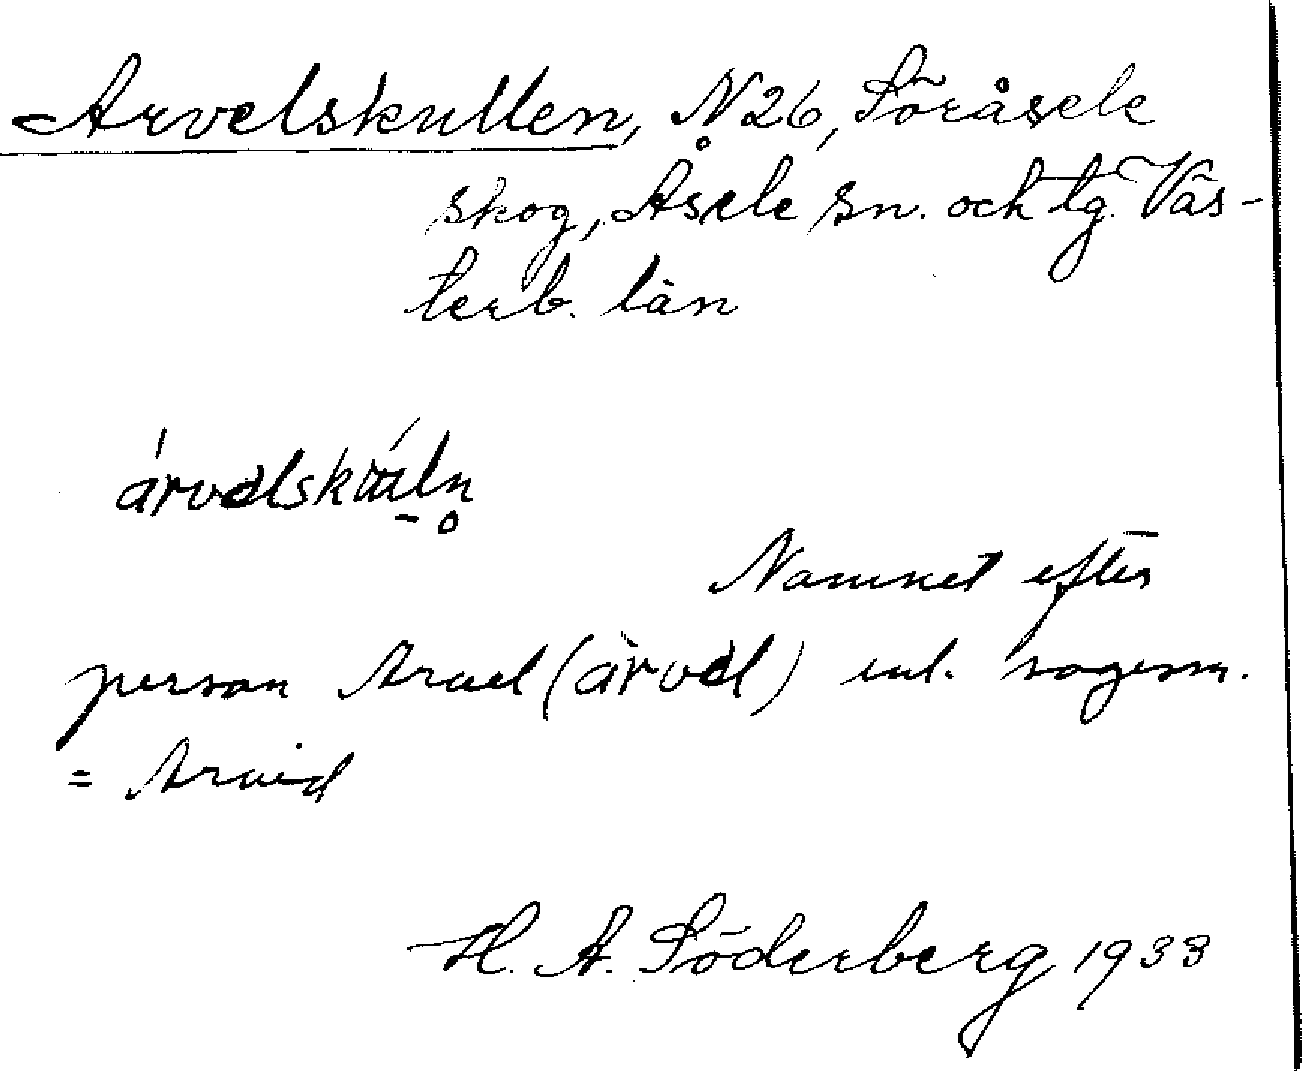 Arvelskullen, N 26, Söråsele
skog, Åsele sn. och tg. Väs-
terb. län
árvəlskúln̥
Namnet efter
person Arvel (àrvəl) enl. sagesm.
= Arvid
H. A. Söderberg 1933